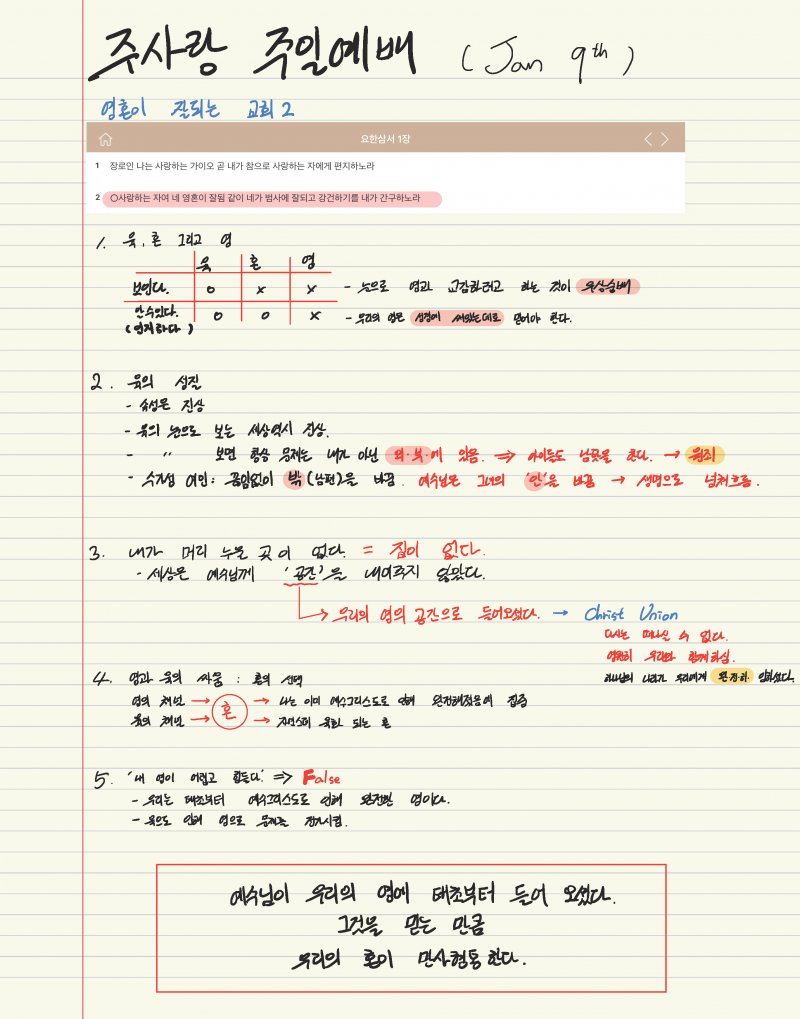 주사랑 주일예배 (Jan 9th)
영혼이 잘되는 교회 2
요한삼서 1장
1 장로인 나는 사랑하는 가이오 곧 내가 참으로 사랑하는 자에게 편지하노라
2 ○사랑하는 자여 네 영혼이 잘됨 같이 네가 범사에 잘되고 강건하기를 내가 간구하노라
1. 육, 혼 그리고 영
육 혼 영
보인다. O X X - 눈으로 영과 교감하려고 하는 것이 우상숭배
알 수 있다. O O X - 우리의 영은 성경에 써있는대로 믿어야 한다.
(인지하다)
2. 육의 성질
- 속성은 진상
- 육의 눈으로 보는 세상역시 진상.
- " 보면 항상 문제는 내가 아닌 외·부·에 있음. ⇒ 아이들도 남탓을 한다. → 원죄
- 수가성 여인: 끊임없이 밖(남편)을 바꿈. 예수님은 그녀의 '안'을 바꿈 → 생명으로 넘쳐흐름.
3. 내가 머리 누울 곳이 없다. = 집이 없다.
- 세상은 예수님께 '공간'을 내어주지 않았다.
→ 우리의 영의 공간으로 들어오셨다. → Christ Union
다시는 떠나실 수 없다.
영원히 우리와 함께하심.
하나님의 나라가 우리에게 완·전·히 임하셨다.
4. 영과 육의 싸움 : 혼의 선택
영의 채널 → 혼 → 나는 이미 예수그리스도로 인해 완전해졌음에 집중
육의 채널 → → 자연스레 육화 되는 혼
5. '내 영이 어렵고 힘들다.' ⇒ False
- 우리는 태초부터 예수그리스도로 인해 완전한 영이다.
- 육으로 인해 영으로 문제를 전가시킴.
예수님이 우리의 영에 태초부터 들어 오셨다.
그것을 믿는 만큼
우리의 혼이 만사형통한다.